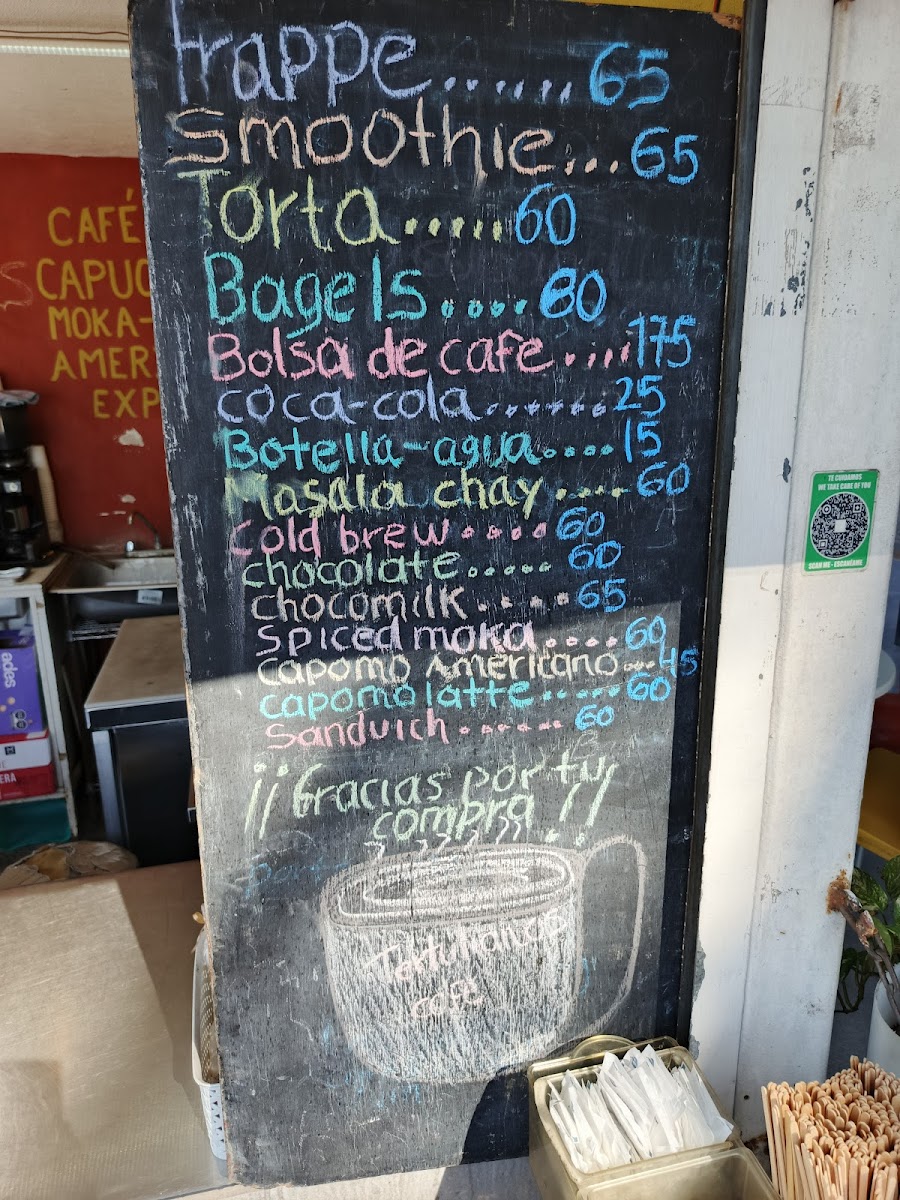 frappe....... 65
Smoothie... 65
Torta..... 60
Bagels.... 80
Bolsa de cafe..... 175
coca-cola...... 25
Botella-agua.... 15
Masala chay .... 60
cold brew.... 60
chocolate..... 60
chocomilk.... 65
spiced moka.... 60
capomo Americano... 45
capomo latte..... 60
Sandwich ...... 60
¡¡Gracias por tu
compra!!
café
CAFÉ
CAPUC
MOKA-
AMER
EXP
ades
TE CUIDAMOS
WE TAKE CARE OF YOU
SCAN ME - ESCANÉAME